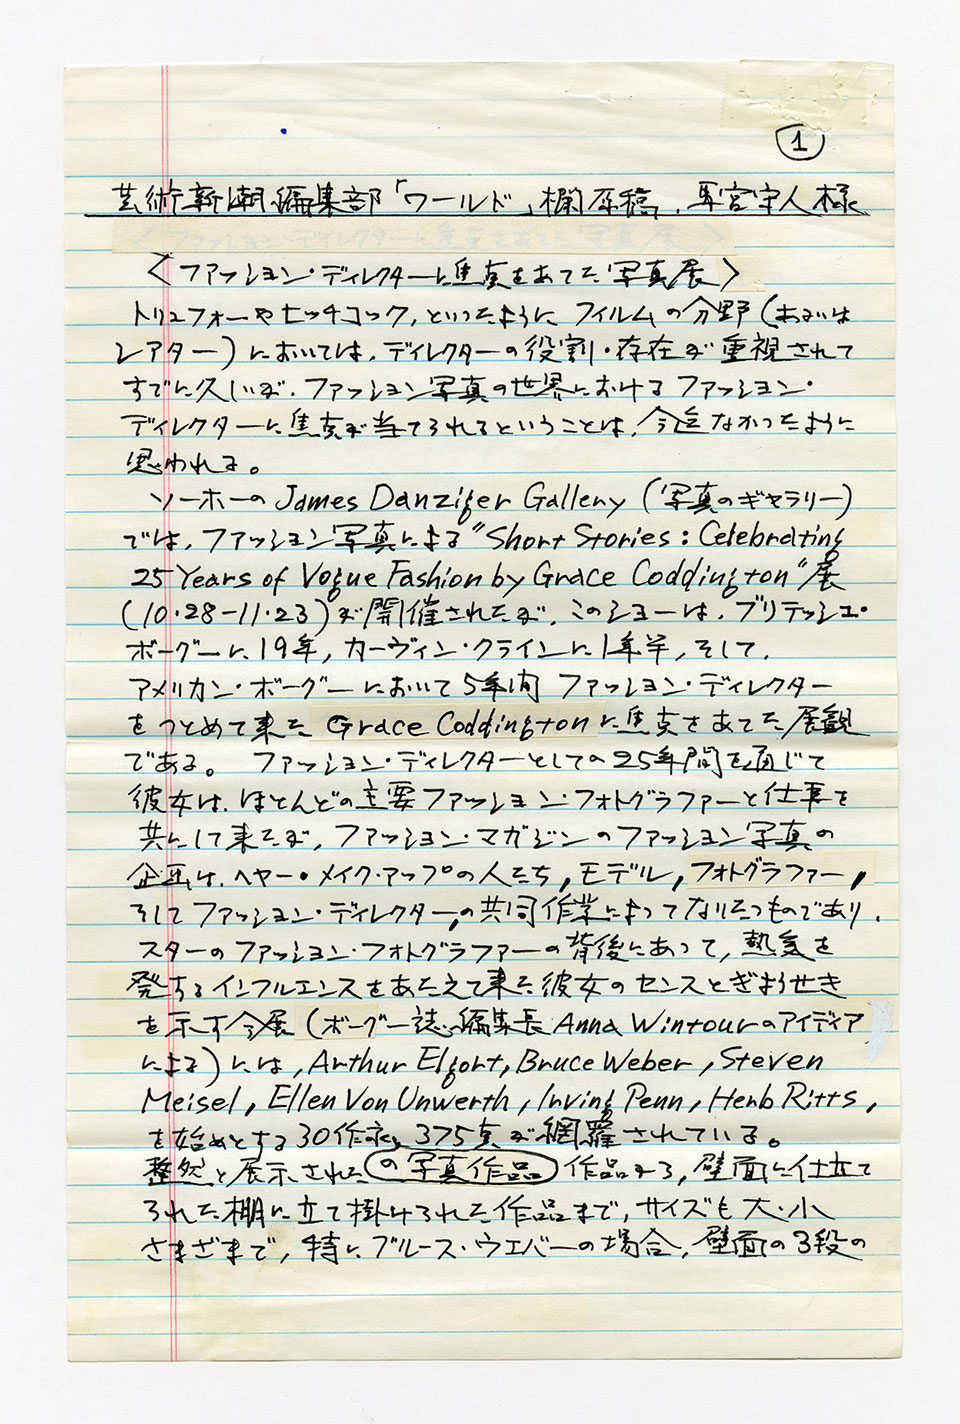 ①
芸術新潮編集部「ワールド」欄原稿，馬宮守人様
〈ファッション・ディレクターに焦点をあてた写真展〉
トリュフォーやヒッチコック，といったように フィルムの分野（あるいは
シアター）においては，ディレクターの役割・存在が重視されて
すでに久しいが，ファッション写真の世界における ファッション・
ディレクターに焦点が当てられるということは，今迄なかったように
思われる。
ソーホーの James Danziger Gallery（写真のギャラリー）
では，ファッション写真による "Short Stories : Celebrating
25 Years of Vogue Fashion by Grace Coddington" 展
(10・28-11・23)が開催されたが，このショーは，ブリテッシュ・
ボーグーに19年，カーヴィン・クラインに1年半，そして，
アメリカン・ボーグーにおいて5年間 ファッション・ディレクター
をつとめて来た Grace Coddington に焦点をあてた展観
である。 ファッション・ディレクターとしての25年間を通じて
彼女は，ほとんどの主要ファッション・フォトグラファーと仕事を
共にして来たが，ファッション・マガジンのファッション写真の
企画は，ヘヤー・メイク・アップの人たち，モデル，フォトグラファー，
そしてファッション・ディレクター，の共同作業によってなりたつものであり，
スターのファッション・フォトグラファーの背後にあって，熱気を
発するインフルエンスをあたえて来た彼女のセンスとぎょうせき
を示す今展（ボーグー誌編集長 Anna Wintourのアイディア
による）には，Arthur Elgort, Bruce Weber, Steven
Meisel, Ellen Von Unwerth, Irving Penn, Herb Ritts,
を始めとする30作家，375点が網羅されている。
整然と展示された の写真作品 作品から，壁面に仕立て
られた棚に立て掛けられた作品まで，サイズも大・小
さまざまで，特に ブルース・ウエバーの場合，壁面の3段の